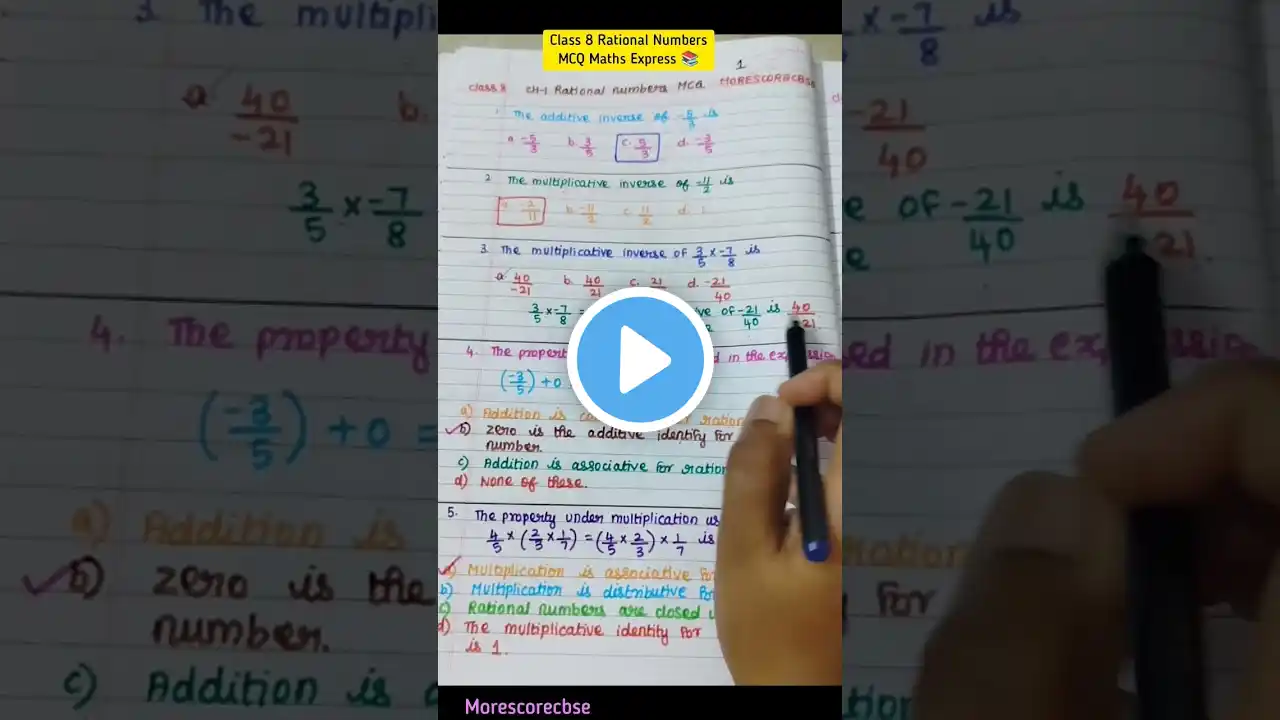 Class 8 Rational Numbers
MCQ Maths Express 📚
1
Class 8 CH-1 Rational numbers MCQ MORESCORECBSE
1. The additive inverse of -5/3 is
a. -5/3 b. 3/5 c. 5/3 d. -3/5
2. The multiplicative inverse of -11/2 is
a. -2/11 b. -11/2 c. 11/2 d. 1
3. The multiplicative inverse of 3/5 × -7/8 is
a. 40/-21 b. 40/21 c. 21 d. -21/40
3/5 × -7/8 = of -21/40 is 40/-21
4. The property used in the expression
(-3/5) + 0
a) Addition is for
b) zero is the additive identify for
number.
c) Addition is associative for
d) None of these.
5. The property under multiplication
4/5 × (2/3 × 1/7) = (4/5 × 2/3) × 1/7 is
a) Multiplication is associative for
b) Multiplication is distributive for
c) Rational numbers are closed
d) The multiplicative identity for
is 1.
Morescorecbse